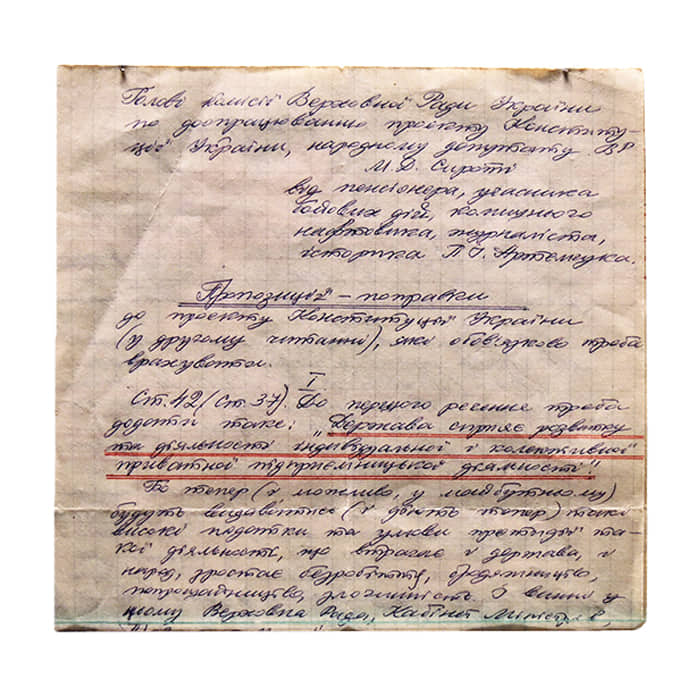 Голові комісії Верховної Ради України
по доопрацюванню проекту Конститу-
ції України, народному депутату ВР
М. Д. Сироті
від пенсіонера, учасника
бойових дій, колишнього
нафтовика, журналіста,
історика П. Г. Артемецка.
Пропозиції – поправки
до проекту Конституції України
(у другому читанні), які обов'язково треба
врахувати.
I
Ст. 42 (ст. 37). До першого речення треба
додати таке: „Держава сприяє розвитку
та діяльності індивідуальної і колективної
приватної підприємницької діяльності".
Бо тепер (і можливо, у майбутньому)
будуть видаватись (і діють тепер) такі
високі податки та умови протидії та-
кої діяльності, що втрачає і держава, і
народ, зростає безробіття, бродяжництво,
попрошайництво, злочинність. І винні у
цьому Верховна Рада, Кабінет Міністрів,